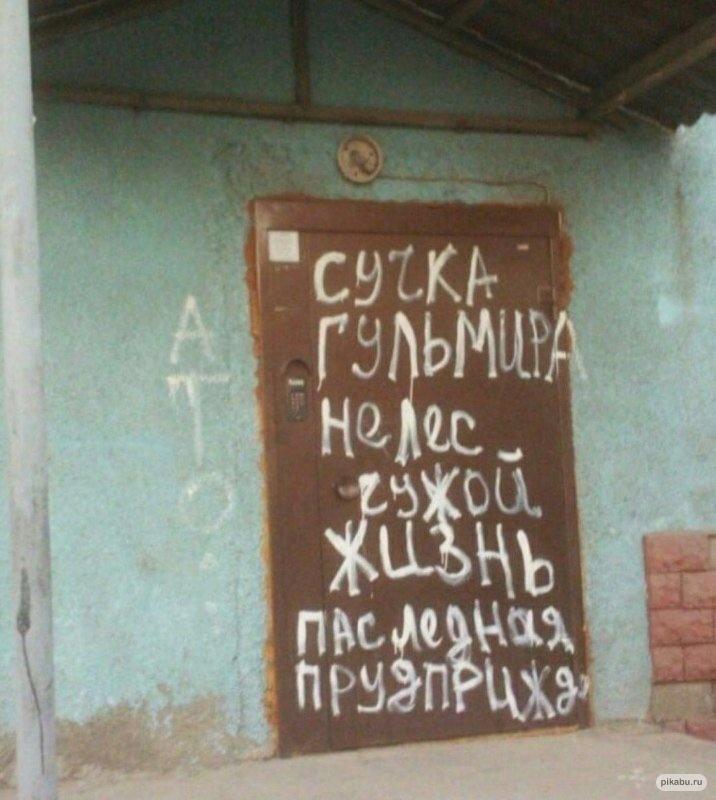 СУЧКА
ГУЛЬМИРА
НеЛеС
ЧУЖОЙ
ЖИЗНЬ
ПАСЛеДНАЯ
ПРУДПРИЖД
АТО
pikabu.ru